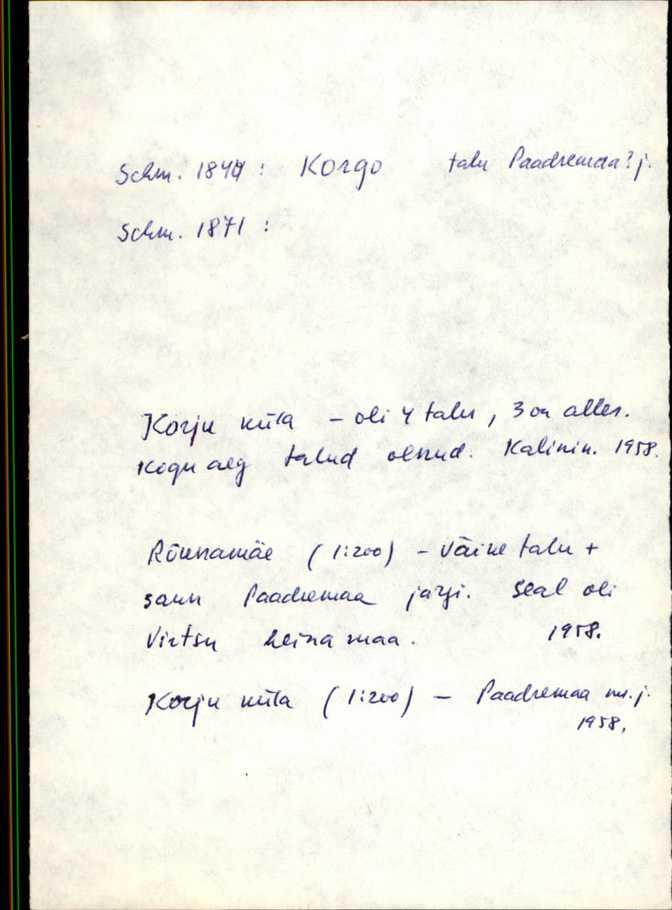 Schm. 1844 : Korgo talu Paadremaa? j.
Schm. 1871 :
Korju küla – oli 4 talu, 3 on alles.
Kogu aeg talud olnud. Kalinin. 1958.
Rõunamäe (1:200) – väike talu +
saun Paadremaa järgi. Seal oli
Virtsu heinamaa. 1958.
Korju küla (1:200) – Paadremaa m. j.
1958.